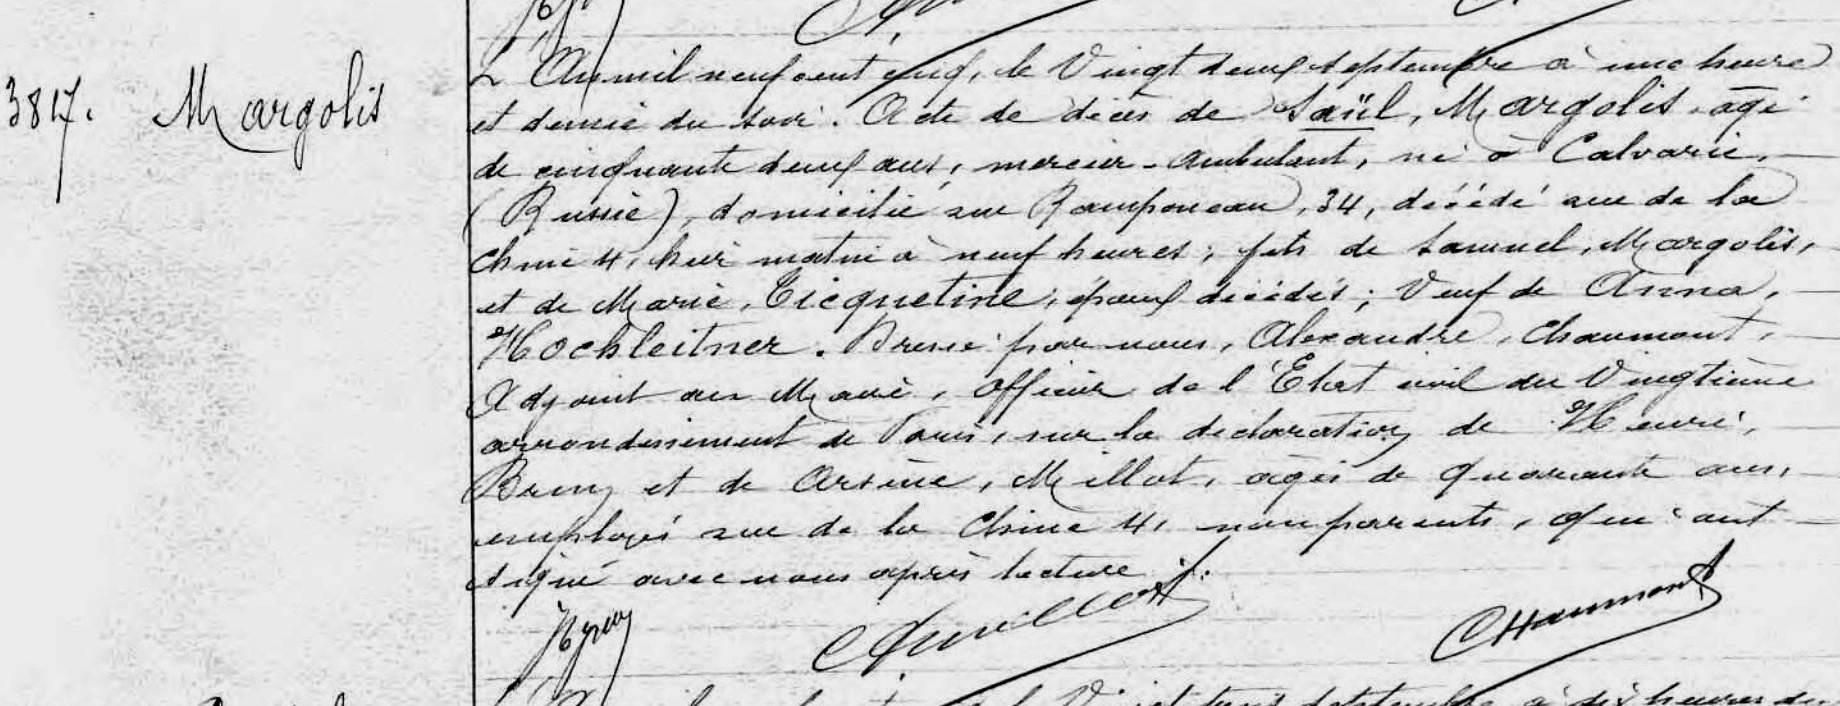 3817. Margolis
L'An mil neuf cent cinq, le Vingt deux septembre à une heure
et demie du soir. Acte de décès de Saül, Margolis, âgé
de cinquante deux ans, mercier-ambulant, né à Calvarie,
(Russie), domicilié rue Ramponeau, 34, décédé rue de la
Chine 4, hier matin à neuf heures; fils de Samuel, Margolis,
et de Marie, Ticquetine, époux décédés; Veuf de Anna,
Hochleitner. Dressé par nous, Alexandre, Chaumont,
Adjoint au Maire, officier de l'Etat civil du Vingtième
arrondissement de Paris, sur la déclaration de Henri,
Bruy et de Arsène, Millot, âgés de quarante ans,
employés rue de la Chine 4, non parents, qui ont
signé avec nous après lecture ./.
HBruy AMillot Chaumont